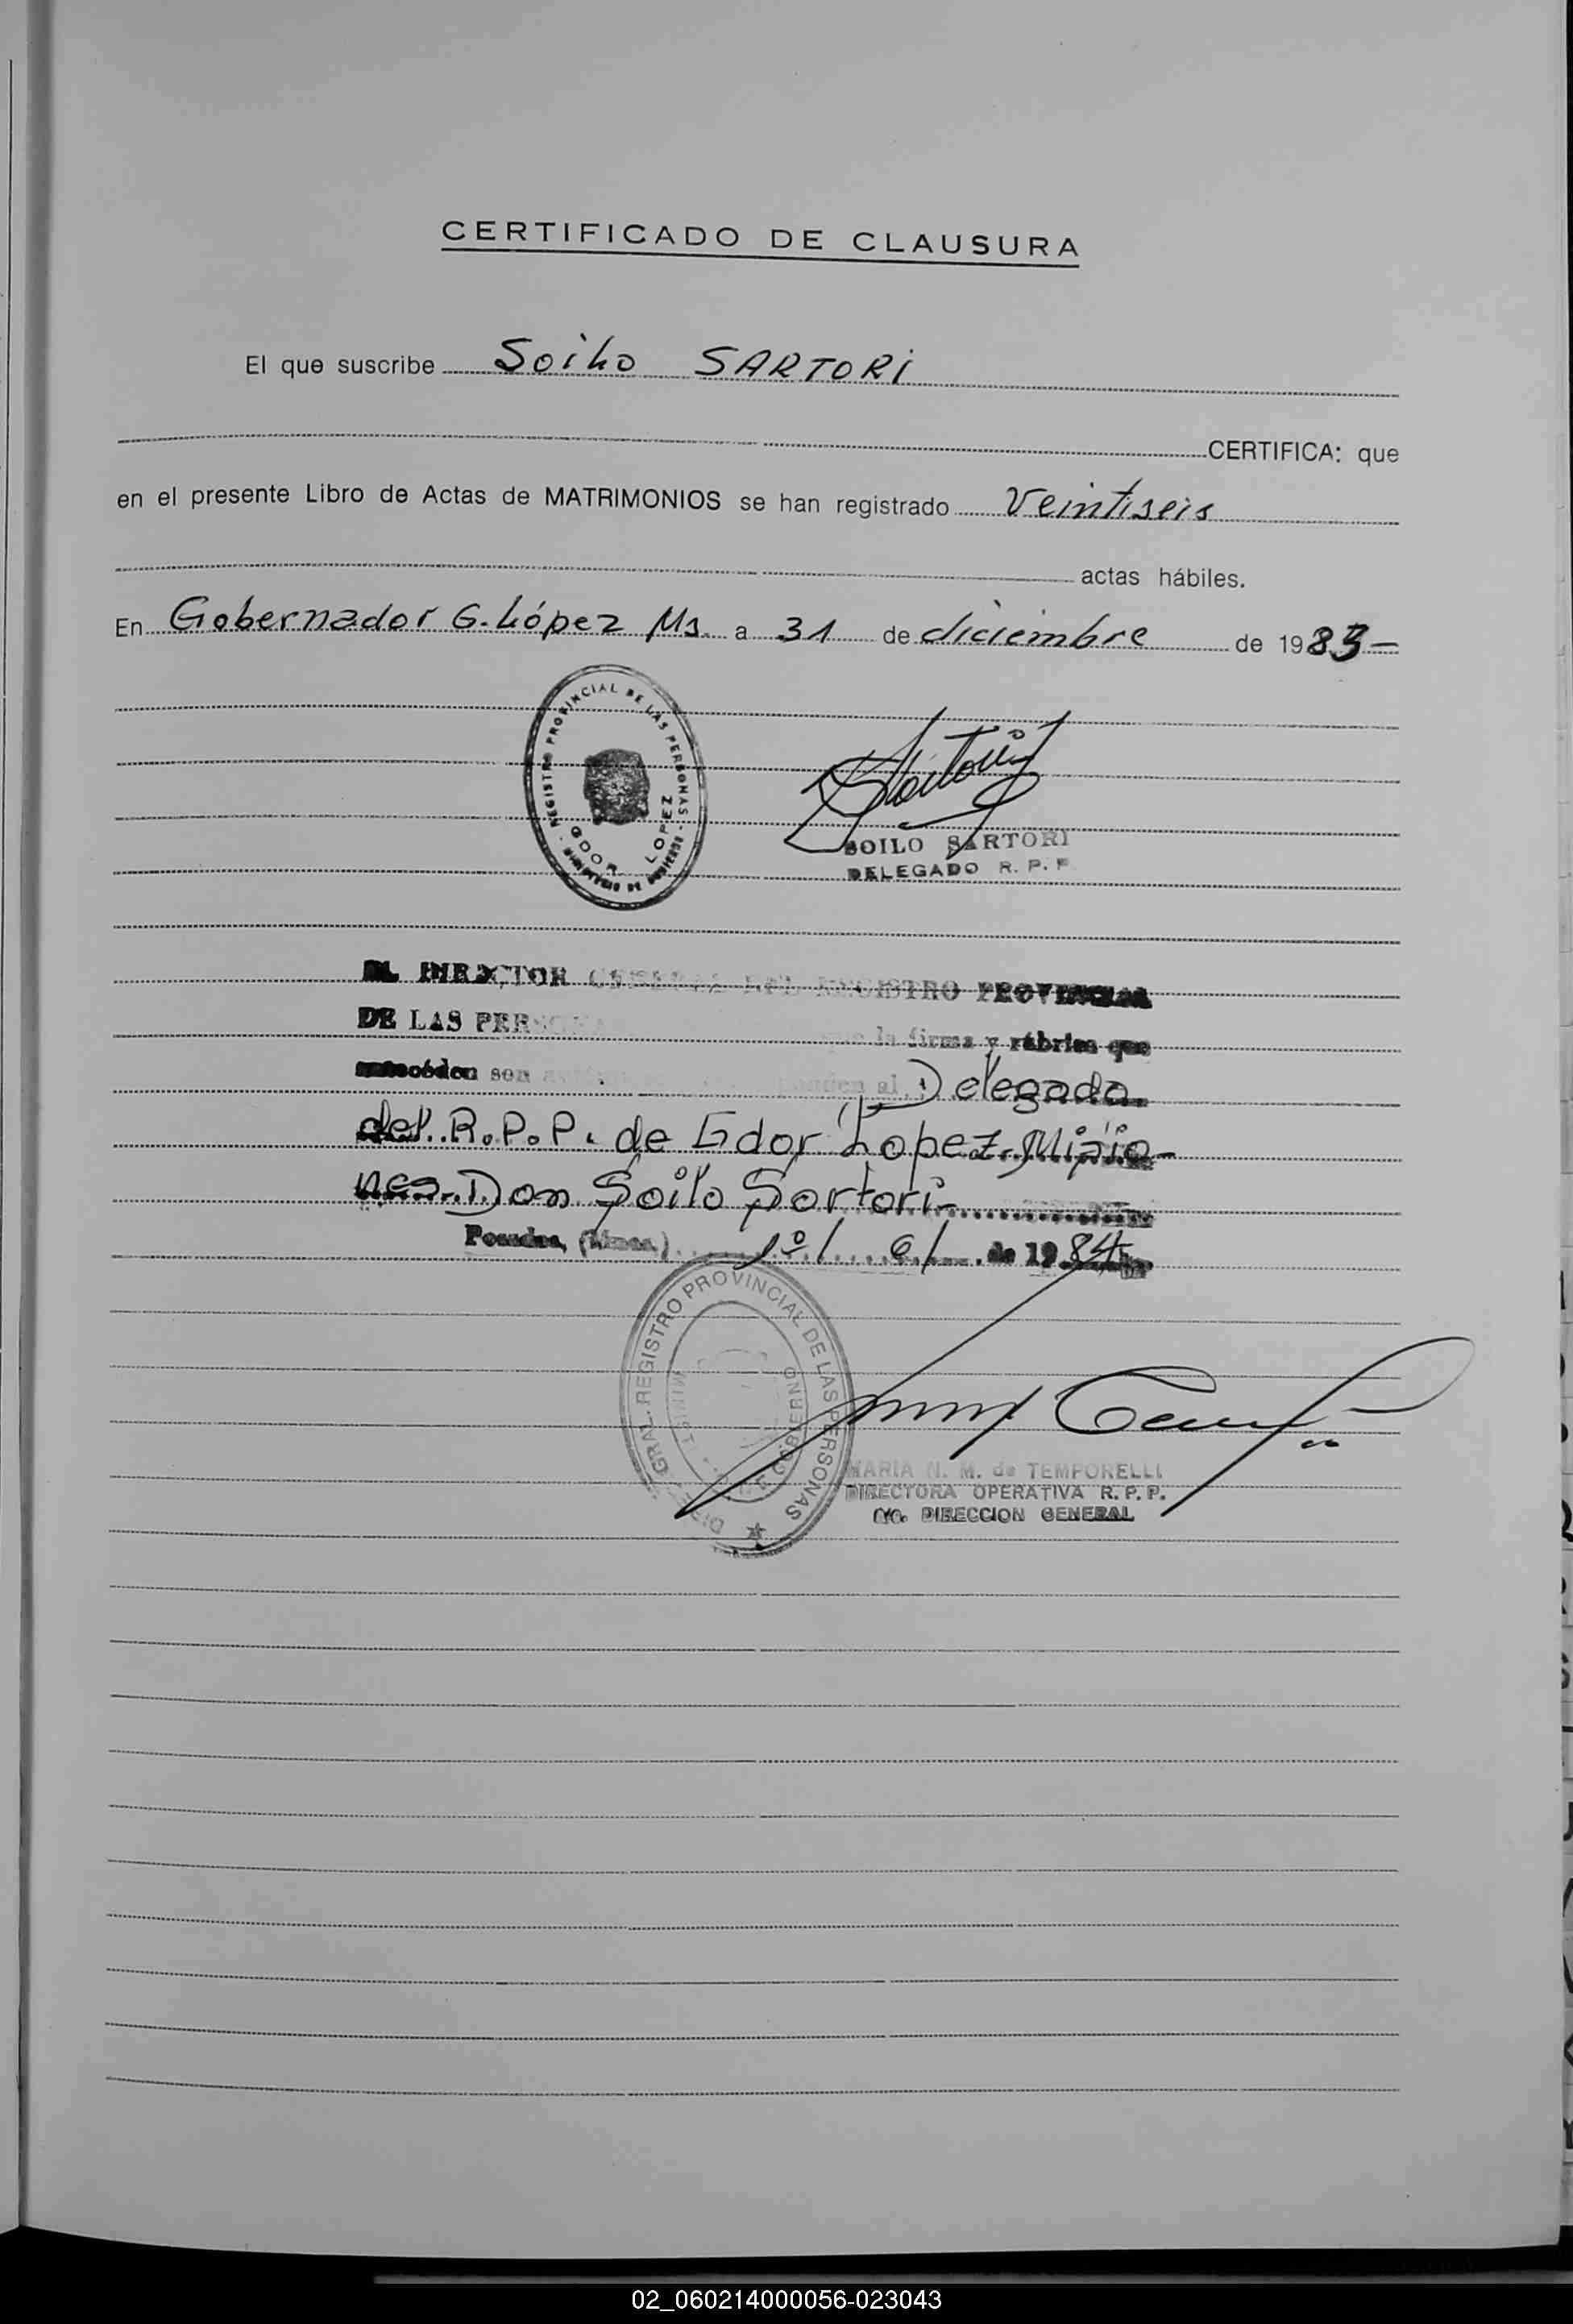 CERTIFICADO DE CLAUSURA
El que suscribe Soilo SARTORI
CERTIFICA: que
en el presente Libro de Actas de MATRIMONIOS se han registrado Veintiseis
actas hábiles.
En Gobernador G. López Ms. a 31 de diciembre de 1983-
REGISTRO PROVINCIAL DE LAS PERSONAS - MINISTERIO DE GOBIERNO -
GDOR LOPEZ
Sartori
SOILO SARTORI
DELEGADO R. P. P
EL DIRECTOR GENERAL DEL REGISTRO PROVINCIAL
DE LAS PERSONAS que la firma y rúbrica que
anteceden son al Delegado
del R.P.P. de Gdor Lopez-Misio-
nes-Don Soilo Sartori-
Posadas, (Mnes.) 1º/ 6/ de 1984
DIREC. GRAL. REGISTRO PROVINCIAL DE LAS PERSONAS
MINIST. DE GOBIERNO
MARIA N. M. de TEMPORELLI
DIRECTORA OPERATIVA R. P. P.
A/C. DIRECCION GENERAL
02_060214000056-023043